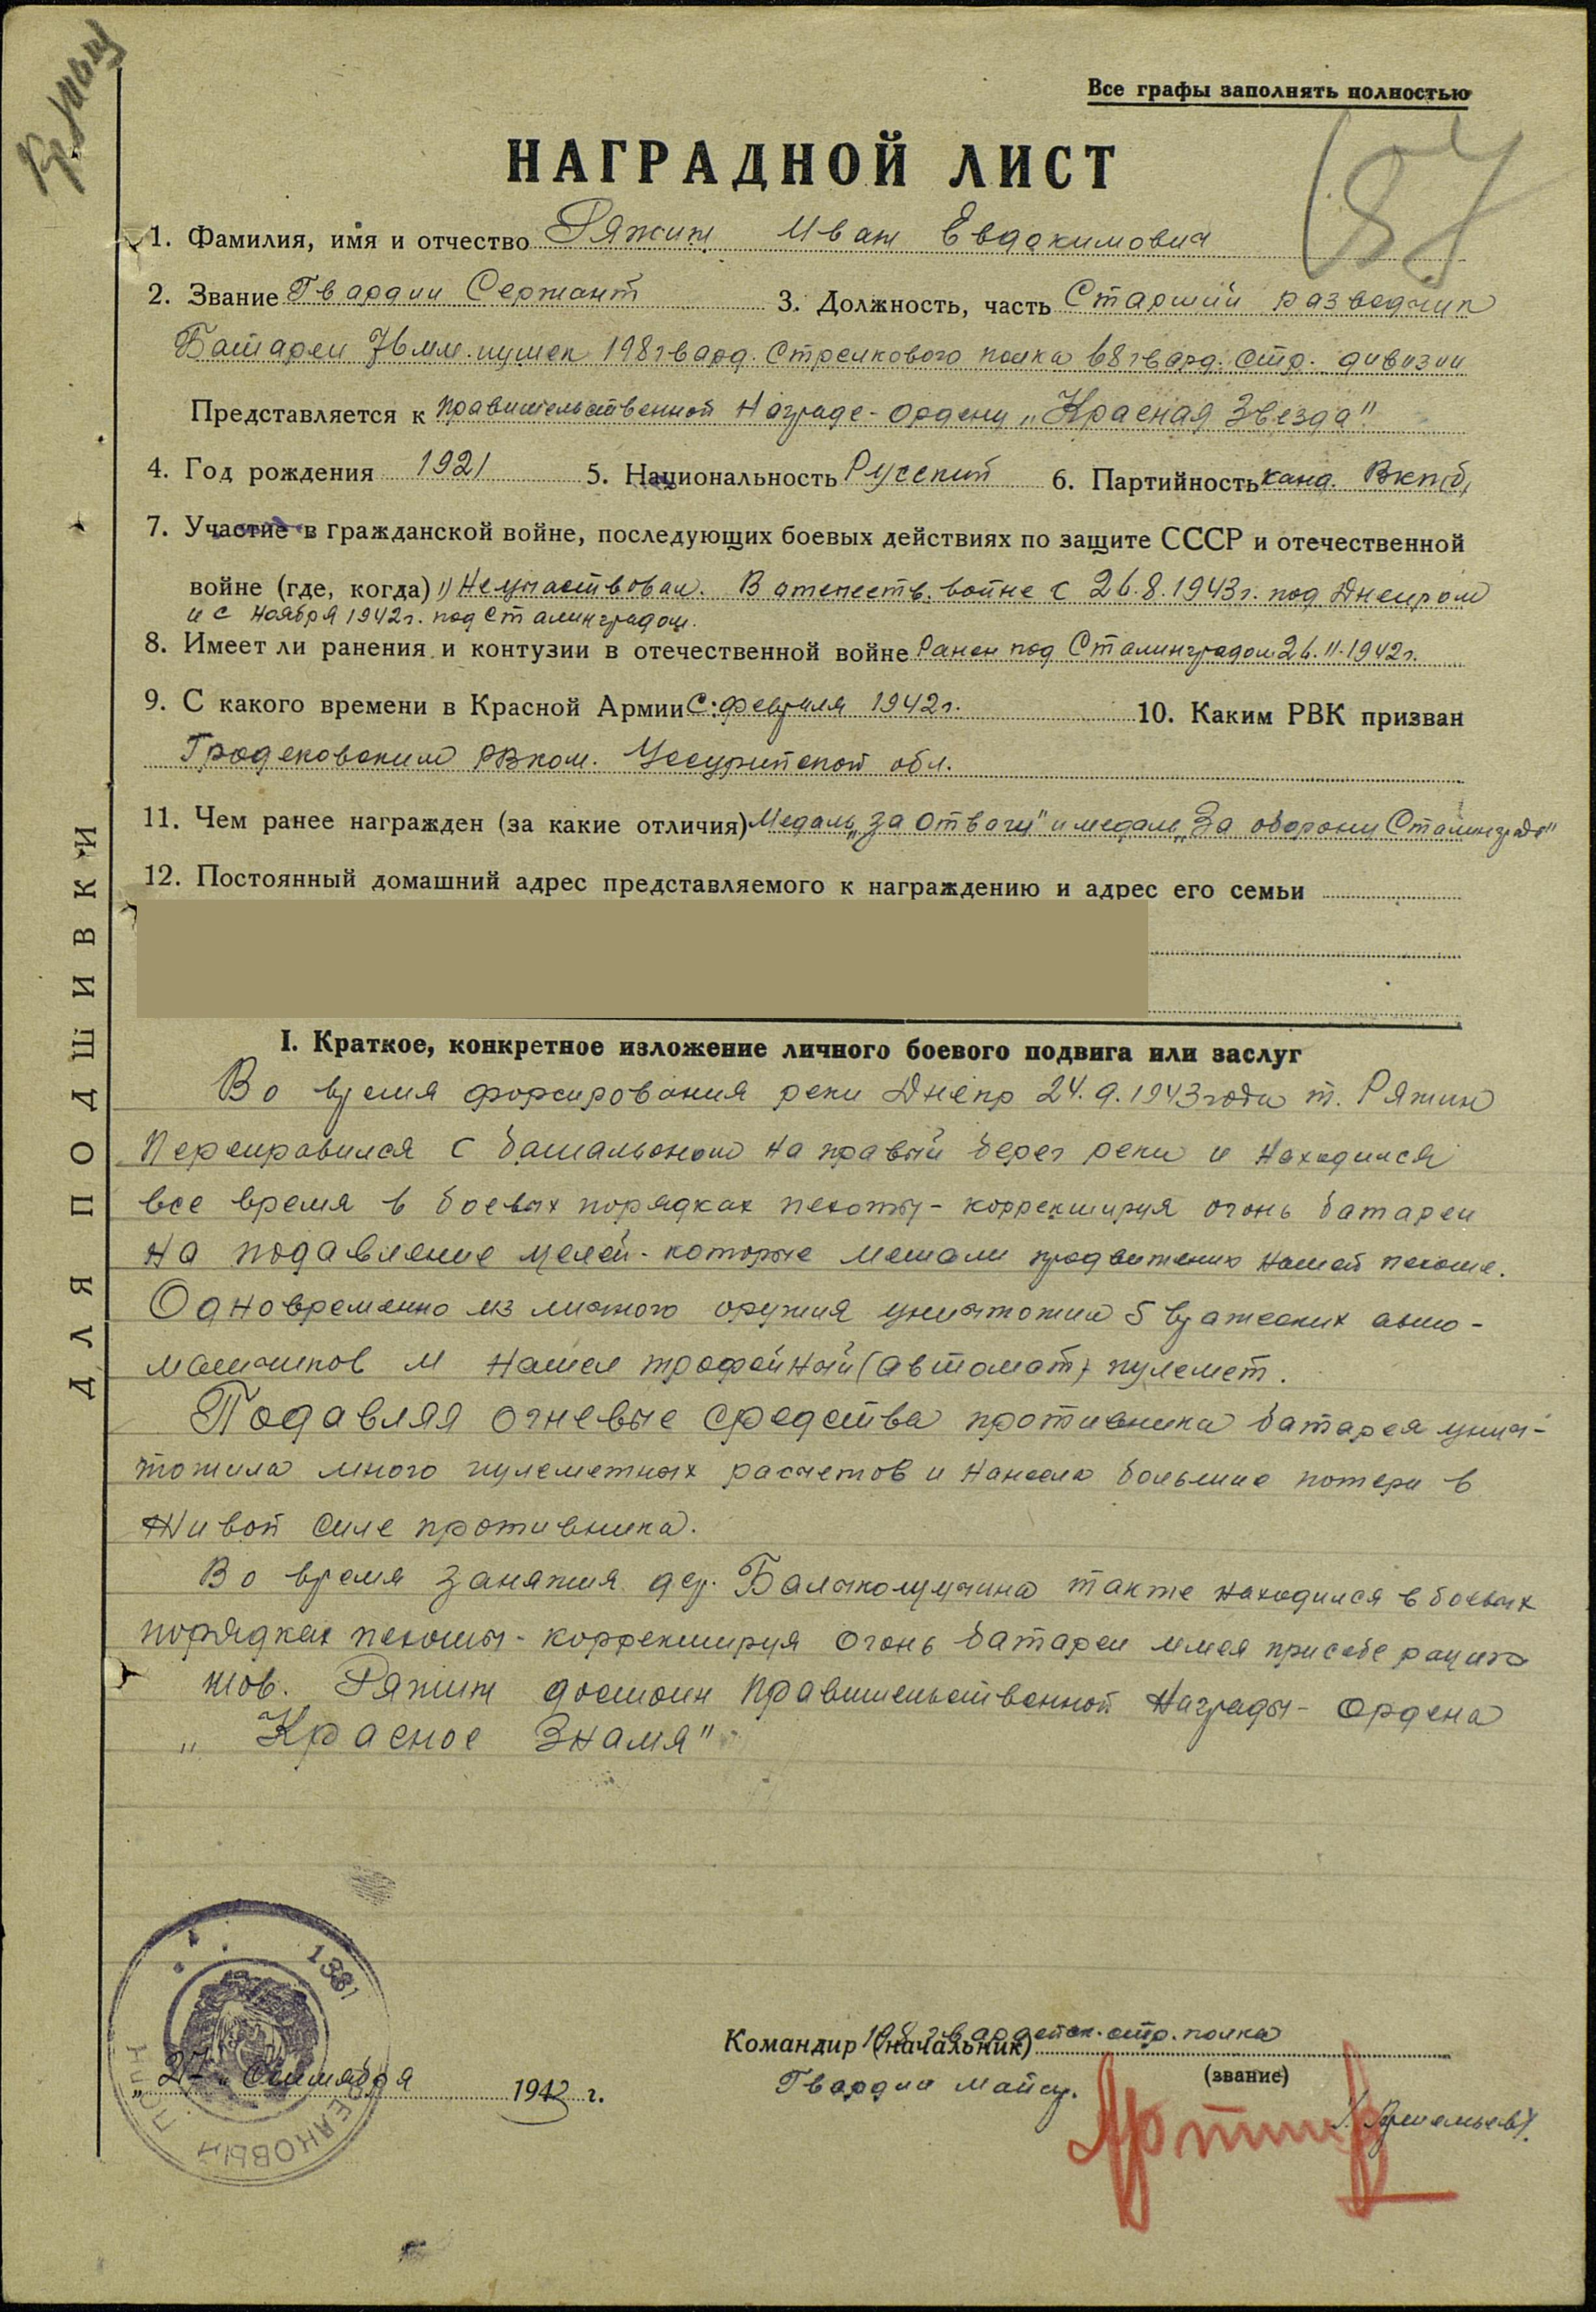 Все графы заполнять полностью
157
НАГРАДНОЙ ЛИСТ
1. Фамилия, имя и отчество Ряжин Иван Евдокимович
2. Звание Гвардии Сержант 3. Должность, часть Старший разведчик
Батареи 76 мм. пушек 198 гвард. Стрелкового полка 68 гвард. стр. дивизии
Представляется к правительственной Награде - ордену „Красная Звезда"
4. Год рождения 1921 5. Национальность Русский 6. Партийность канд. ВКП(б)
7. Участие в гражданской войне, последующих боевых действиях по защите СССР и отечественной
войне (где, когда) 1) Не участвовал. В отечеств. войне с 26.8.1943г. под Днепром
и с ноября 1942г. под Сталинградом.
8. Имеет ли ранения и контузии в отечественной войне Ранен под Сталинградом 26.11.1942г.
9. С какого времени в Красной Армии С. февраля 1942г. 10. Каким РВК призван
Гродековским РВком. Уссурийской обл.
11. Чем ранее награжден (за какие отличия) Медаль „За Отвагу" и медаль „За оборону Сталинграда"
12. Постоянный домашний адрес представляемого к награждению и адрес его семьи
ДЛЯ ПОДШИВКИ
I. Краткое, конкретное изложение личного боевого подвига или заслуг
Во время форсирования реки Днепр 24.9.1943 года т. Ряжин
Переправился с батальоном на правый берег реки и находился
все время в боевых порядках пехоты - корректируя огонь батареи
на подавление целей - которые мешали продвижению нашей пехоте.
Одновременно из личного оружия уничтожил 5 вражеских авто-
матчиков и нашел трофейный (автомат) пулемет.
Подавляя огневые средства противника батарея унич-
тожила много пулеметных расчетов и нанесла большие потери в
живой силе противника.
Во время занятия дер. также находился в боевых
порядках пехоты - корректируя огонь батареи имея при себе рацию
тов. Ряжин достоин Правительственной Награды - Ордена
„Красное Знамя"
1381
„27" Сентября 1943 г.
Командир (начальник) 198 гвардейск. стр. полка
(звание)
Гвардии майор.